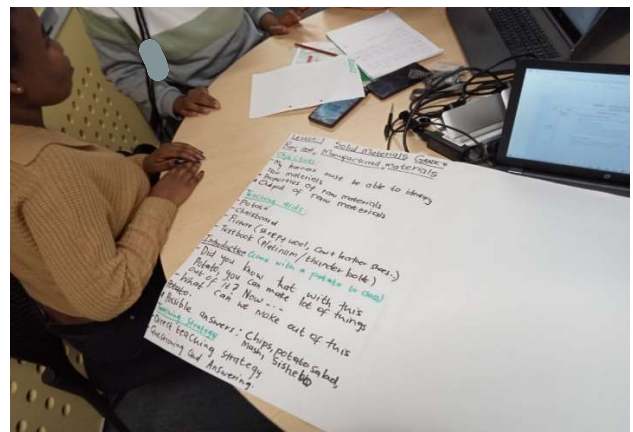 Lesson 1 Solid Materials Grade 4
Raw and Manufactured Materials
Objectives:
My learners must be able to identify
raw materials
• Properties of raw materials
• Output of raw materials
Teaching aids:
- Potato
- Chalkboard
- Picture (sheep & wool, Cow & leather shoes.)
- Textbook (platinum / thunder bolds)
Introduction (come with a potato to class)
- Did you know that with this
Potato, you can make lot of things
out of it? Now ---
- What can we make out of this
Potato.
* Possible answers: Chips, potato salad,
Mash, Sishebo
Teaching Strategy
- Direct teaching strategy
Questioning and Answering.